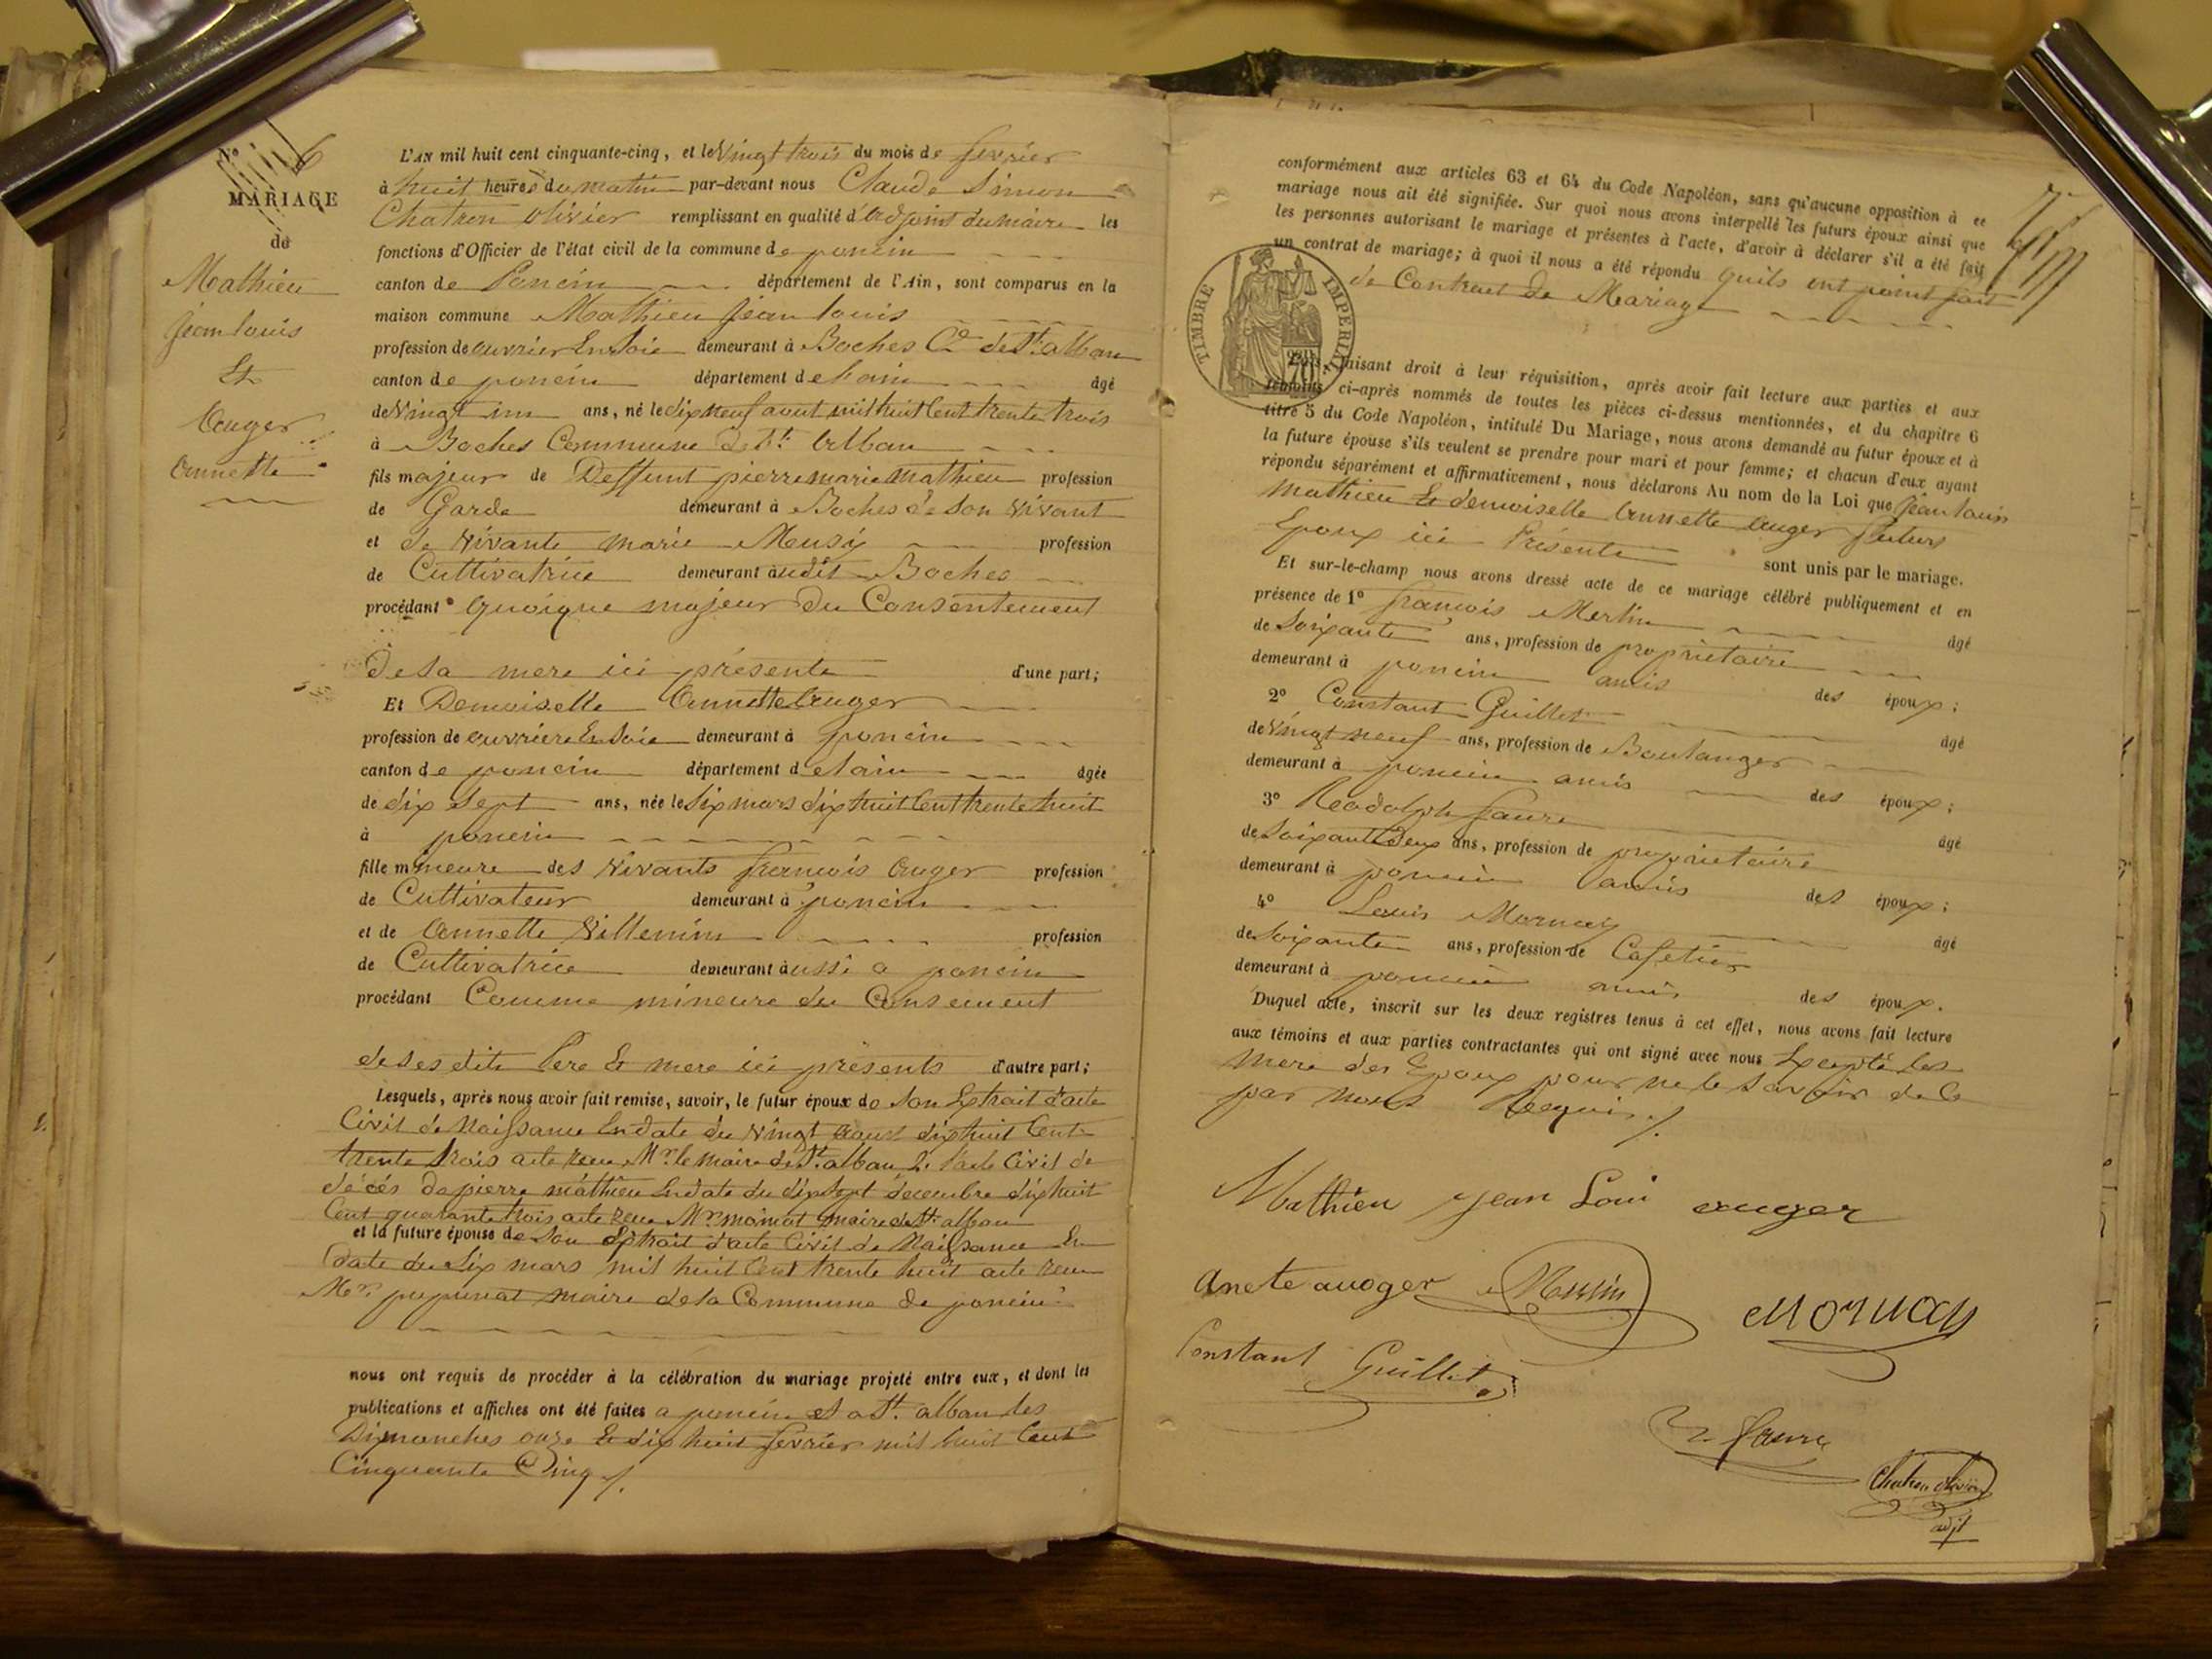 N° 6
MARIAGE
de
Mathieu
jean louis
Et
Auger
Annette
L'AN mil huit cent cinquante-cinq, et le Vingt trois du mois de fevrier
à huit heures du matin par-devant nous Claude Simon
Chatron olivier remplissant en qualité d'adjoint du maire les
fonctions d'Officier de l'état civil de la commune de poncin
canton de Poncin département de l'Ain, sont comparus en la
maison commune Mathieu jean louis
profession de ouvrier En Soie demeurant à Boches Cne de St alban
canton de poncin département de l'ain âgé
de Vingt un ans, né le dix neuf aout mil huit Cent trente trois
à Boches Commune de St Alban
fils majeur de Deffunt pierre marie Mathieu profession
de Garde demeurant à Boches de Son Vivant
et de Vivante marie Meusy profession
de Cultivatrice demeurant audit Boches
procédant quoique majeur du Consentement
de sa mere ici présente d'une part;
Et Demoiselle Annette Auger
profession de ouvriere En Soie demeurant à poncin
canton de poncin département de l'ain âgée
de dix Sept ans, née le Six mars dix huit Cent trente huit
à poncin
fille mineure des Vivants francois Auger profession
de Cultivateur demeurant à poncin
et de Annette Villemin profession
de Cultivatrice demeurant aussi a poncin
procédant Comme mineure du Consement
de ses dits Pere Et mere ici présents d'autre part;
Lesquels, après nous avoir fait remise, savoir, le futur époux de Son Extrait d'acte
Civil de Naissance En date du Vingt aout dix huit Cent
trente trois acte recu Mr le maire de St alban 2° l'acte Civil de
décés de pierre mathieu En date du dix Sept decembre dix huit
Cent quarante trois acte recu Mr maire de St alban
et la future épouse de Son Extrait d'acte Civil de Naissance En
date du Six mars mil huit Cent trente huit acte recu
Mr maire de la Commune de poncin
nous ont requis de procéder à la célébration du mariage projeté entre eux, et dont les
publications et affiches ont été faites a poncin et a St alban les
Dimanches onze Et dix huit fevrier mil huit Cent
Cinquante Cinq
conformément aux articles 63 et 64 du Code Napoléon, sans qu'aucune opposition à ce
mariage nous ait été signifiée. Sur quoi nous avons interpellé les futurs époux ainsi que
les personnes autorisant le mariage et présentes à l'acte, d'avoir à déclarer s'il a été fait
un contrat de mariage; à quoi il nous a été répondu quils ont point fait
de Contrat de Mariage
TIMBRE IMPERIAL
faisant droit à leur réquisition, après avoir fait lecture aux parties et aux
témoins ci-après nommés de toutes les pièces ci-dessus mentionnées, et du chapitre 6
titre 5 du Code Napoléon, intitulé Du Mariage, nous avons demandé au futur époux et à
la future épouse s'ils veulent se prendre pour mari et pour femme; et chacun d'eux ayant
répondu séparément et affirmativement, nous déclarons Au nom de la Loi que jean louis
mathieu Et demoiselle Annette Auger futurs
Epoux ici Présents sont unis par le mariage.
Et sur-le-champ nous avons dressé acte de ce mariage célébré publiquement et en
présence de 1° francois Merlin âgé
de Soixante ans, profession de proprietaire
demeurant à poncin amis des époux;
2° Constant Guillet âgé
de Vingt neuf ans, profession de Boulanger
demeurant à poncin amis des époux;
3° faure âgé
de Soixante Deux ans, profession de proprietaire
demeurant à poncin amis des époux;
4° Louis Mornay âgé
de Soixante ans, profession de Cafetier
demeurant à poncin amis des époux.
Duquel acte, inscrit sur les deux registres tenus à cet effet, nous avons fait lecture
aux témoins et aux parties contractantes qui ont signé avec nous Excepté les
mere des Epoux pour ne le Savoir de Ce
par nous Requis
Mathieu jean Loui auger
anete auoger Merlin
Mornay
Constant Guillet
faure
Chatron olivier
adjt